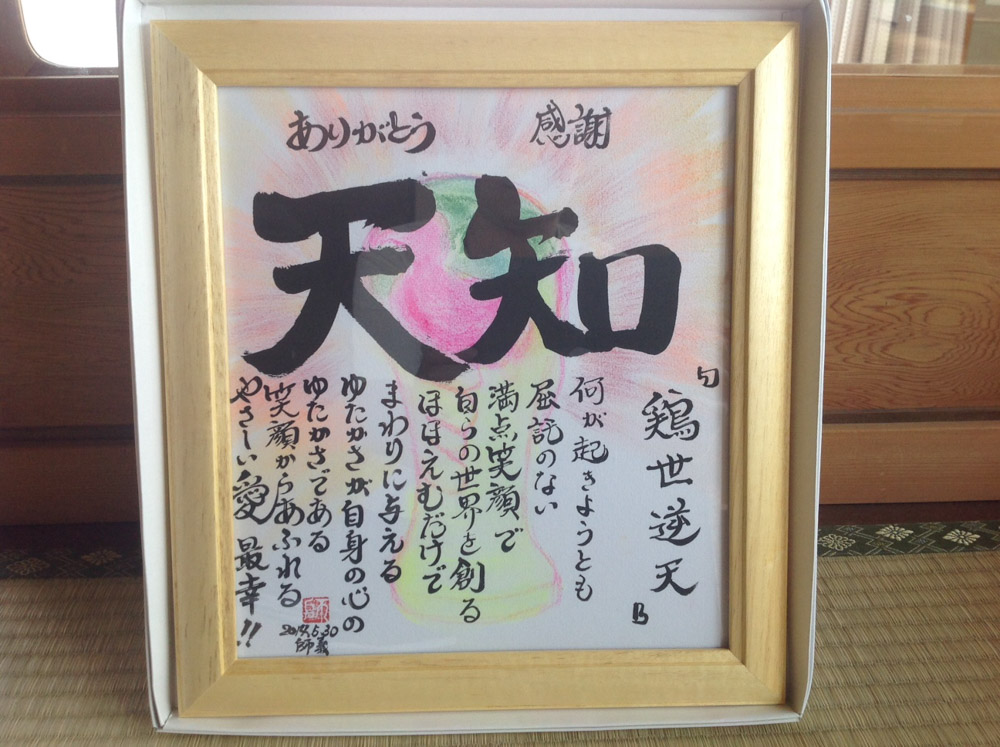 ありがとう 感謝
天知
鶏世逆天
何が起きようとも
屈託のない
満点笑顔で
自らの世界を創る
ほほえむだけで
まわりに与える
ゆたかさが自身の心の
ゆたかさである
笑顔からあふれる
やさしい愛 最幸!!
師義